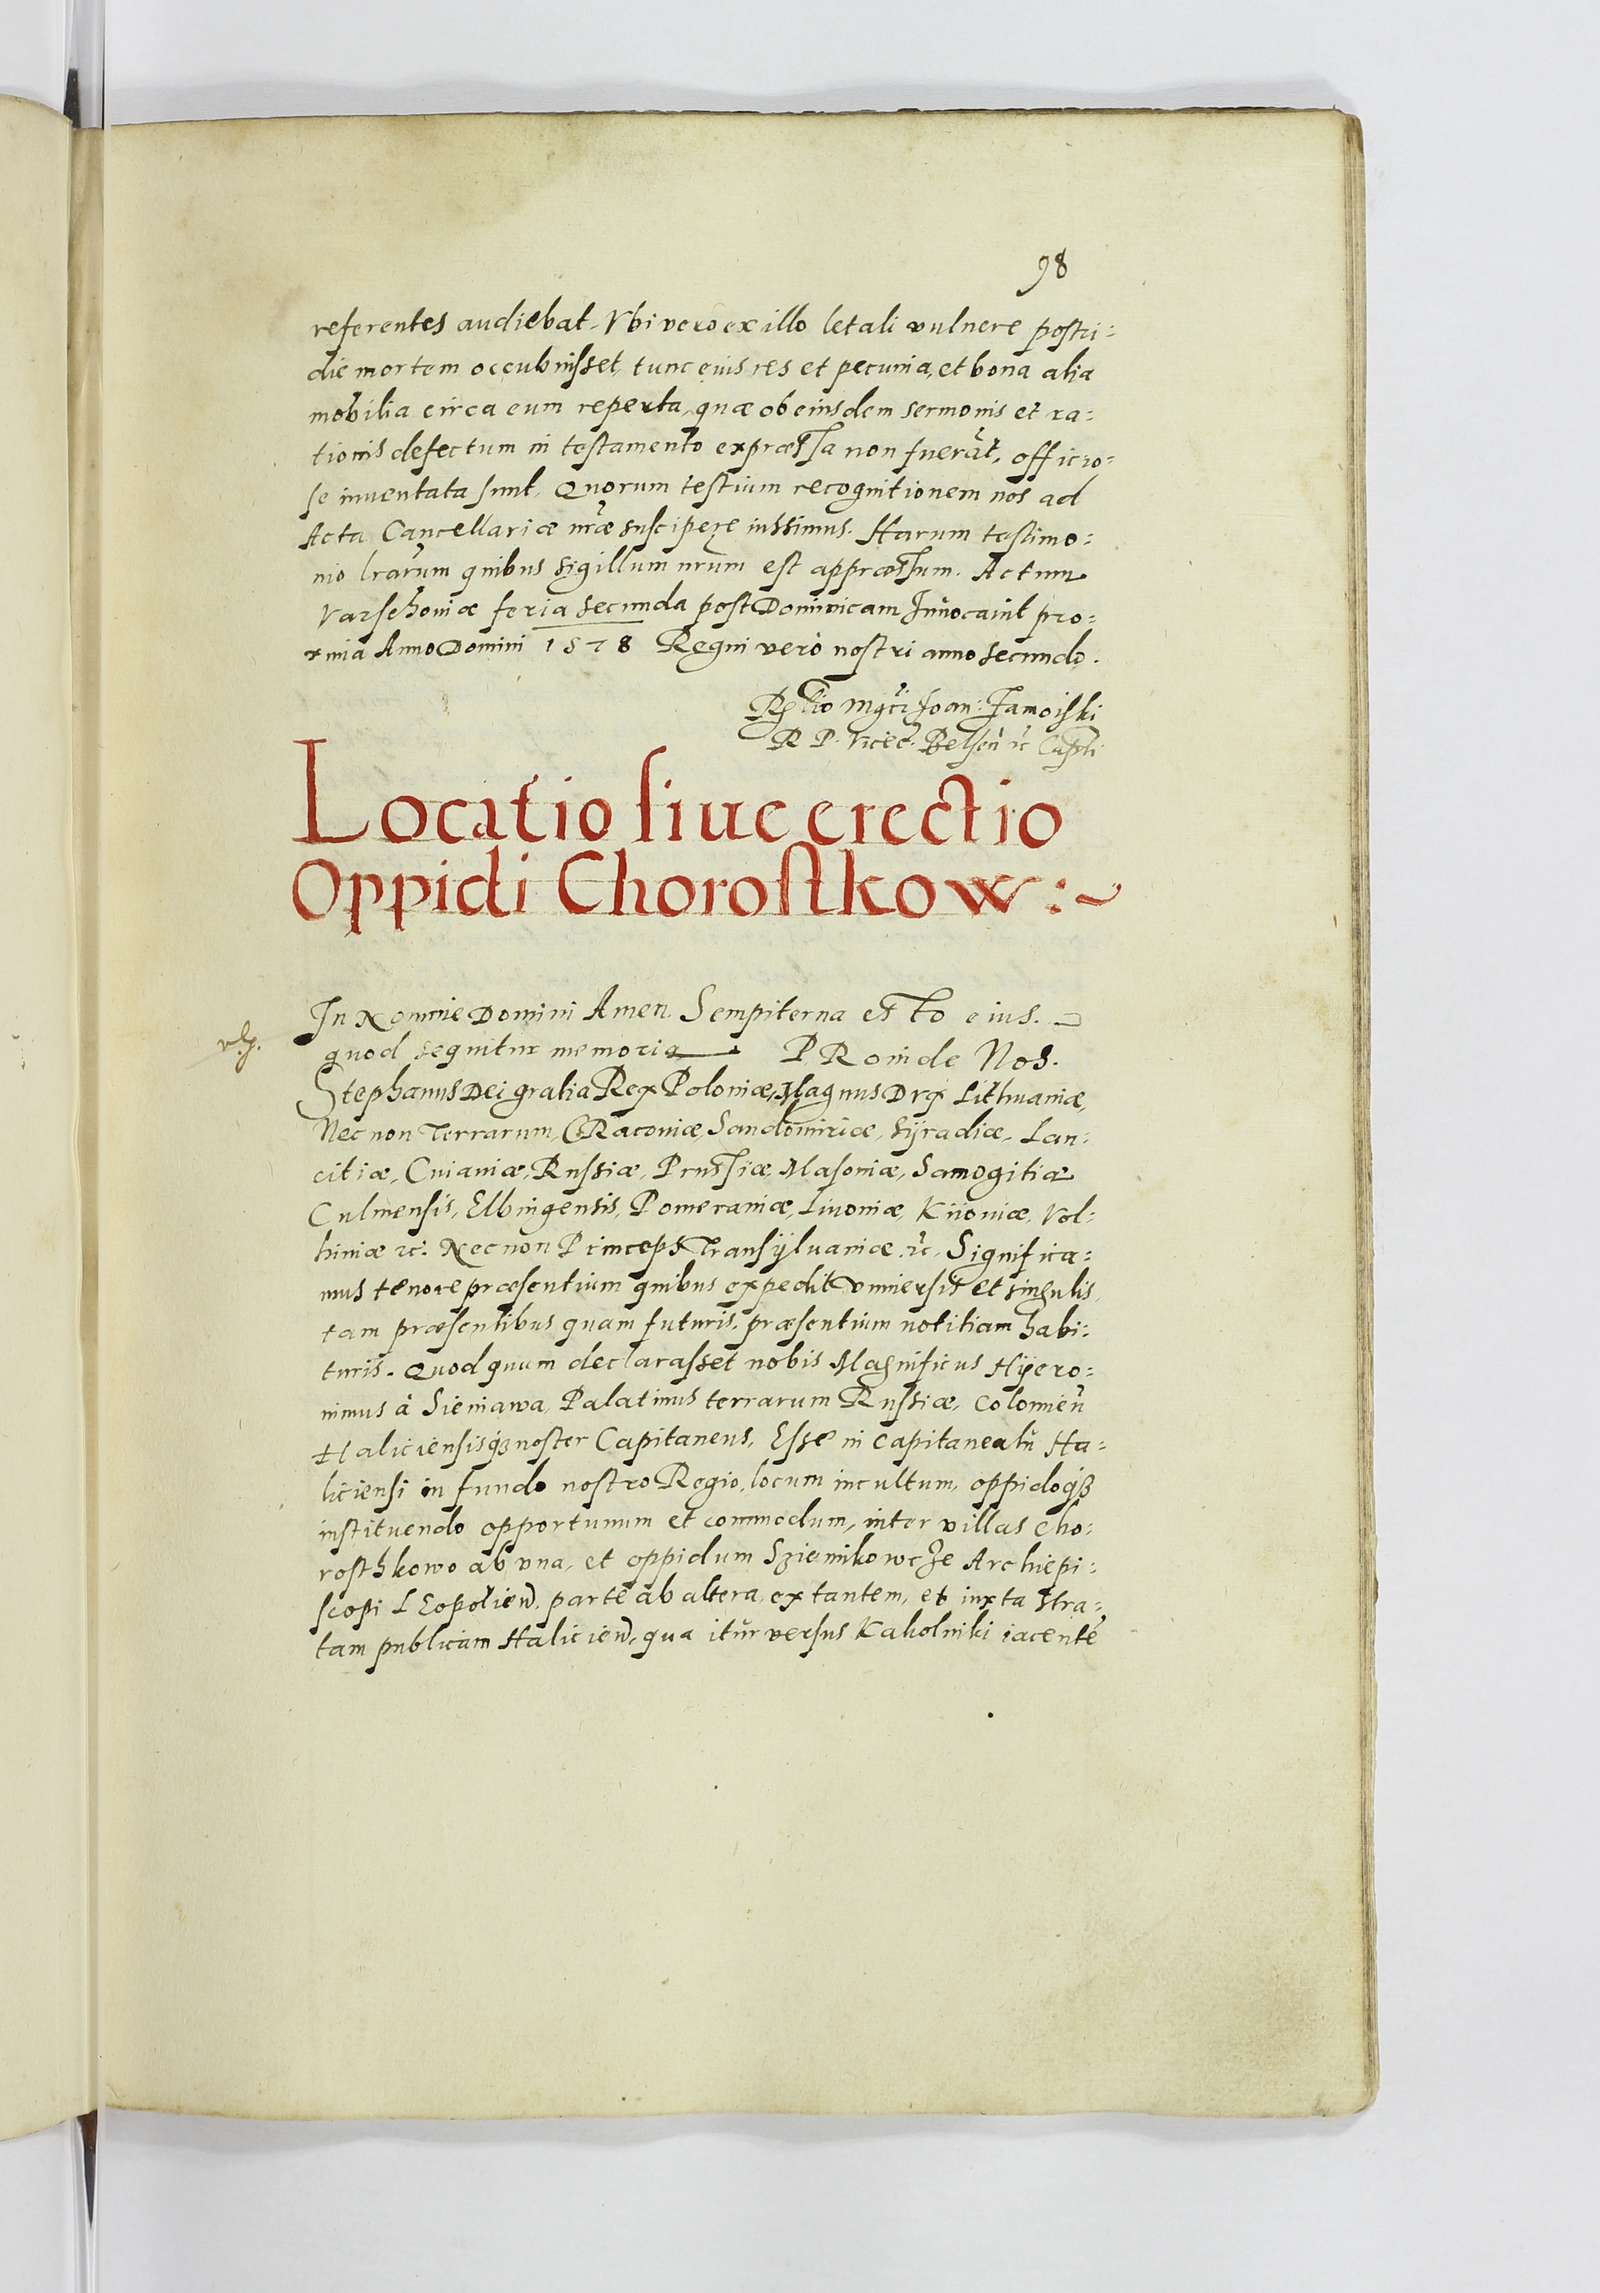 98
referentes audiebat. Vbi vero ex illo letali vulnere postri:
die mortem occubuisset, tunc eius res et pecunia, et bona alia
mobilia circa eum reperta, quæ ob eiusdem sermonis et ra:
tionis defectum in testamento expræssa non fuerāt, officio:
se inuentata sunt. Quorum testium recognitionem nos ad
Acta Cancellariæ nr̃æ suscipere iussimus. Harum testimo:
nio lr̃arum quibus sigillum nr̃um est appræssum. Actum
Varschouiæ feria secunda post Dominicam Inuocauit pro:
xima Anno Domini 1578 Regni vero nostri anno secundo.
Rel̃tio Mg̃ci Joan: Zamoiski
R P. Vicec: Belsen̄ ꝛc Cap̃ti
Locatio siue erectio
Oppidi Chorostkow :~
In Nomine Domini Amen. Sempiterna esto eius.
quod sequitur memoria PRoinde Nos.
Stephanus Dei gratia Rex Poloniæ, Magnus Dux Lithuaniæ,
Nec non Terrarum, CRacouiæ, Sandomiriæ, Syradiæ, Lan:
citiæ, Cuiauiæ, Russiæ, Prussiæ, Masouiæ, Samogitiæ
Culmensis, Elbingensis, Pomeraniæ, Liuoniæ, Kiiouiæ, Vol:
hiniæ ꝛc. Nec non Princeps Transyluaniæ ꝛc. Significa:
mus tenore præsentium quibus expedit vniuersis et singulis,
tam præsentibus quam futuris, præsentium notitiam habi:
turis. Quod quum declarasset nobis Magnificus Hyero:
nimus à Sieniawa, Palatinus terrarum Russiæ, Colomien̄
Haliciensisqꝫ noster Capitaneus, Esse in Capitaneatu Ha:
liciensi in fundo nostro Regio, locum incultum, oppidoqꝫ
instituendo opportunum et commodum, inter villas Cho:
rosthkowo ab vna, et oppidum Sziemikowcze Archiepi:
scopi LEopolien̄. parte ab altera, extantem, et iuxta stra:
tam publicam Halicien̄, qua itur versus Kakolniki iacentē